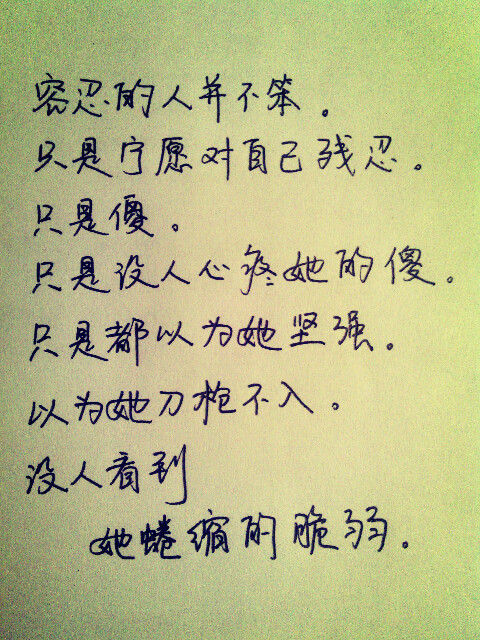 容忍的人并不笨。
只是宁愿对自己残忍。
只是傻。
只是没人心疼她的傻。
只是都以为她坚强。
以为她刀枪不入。
没人看到
她蜷缩的脆弱。